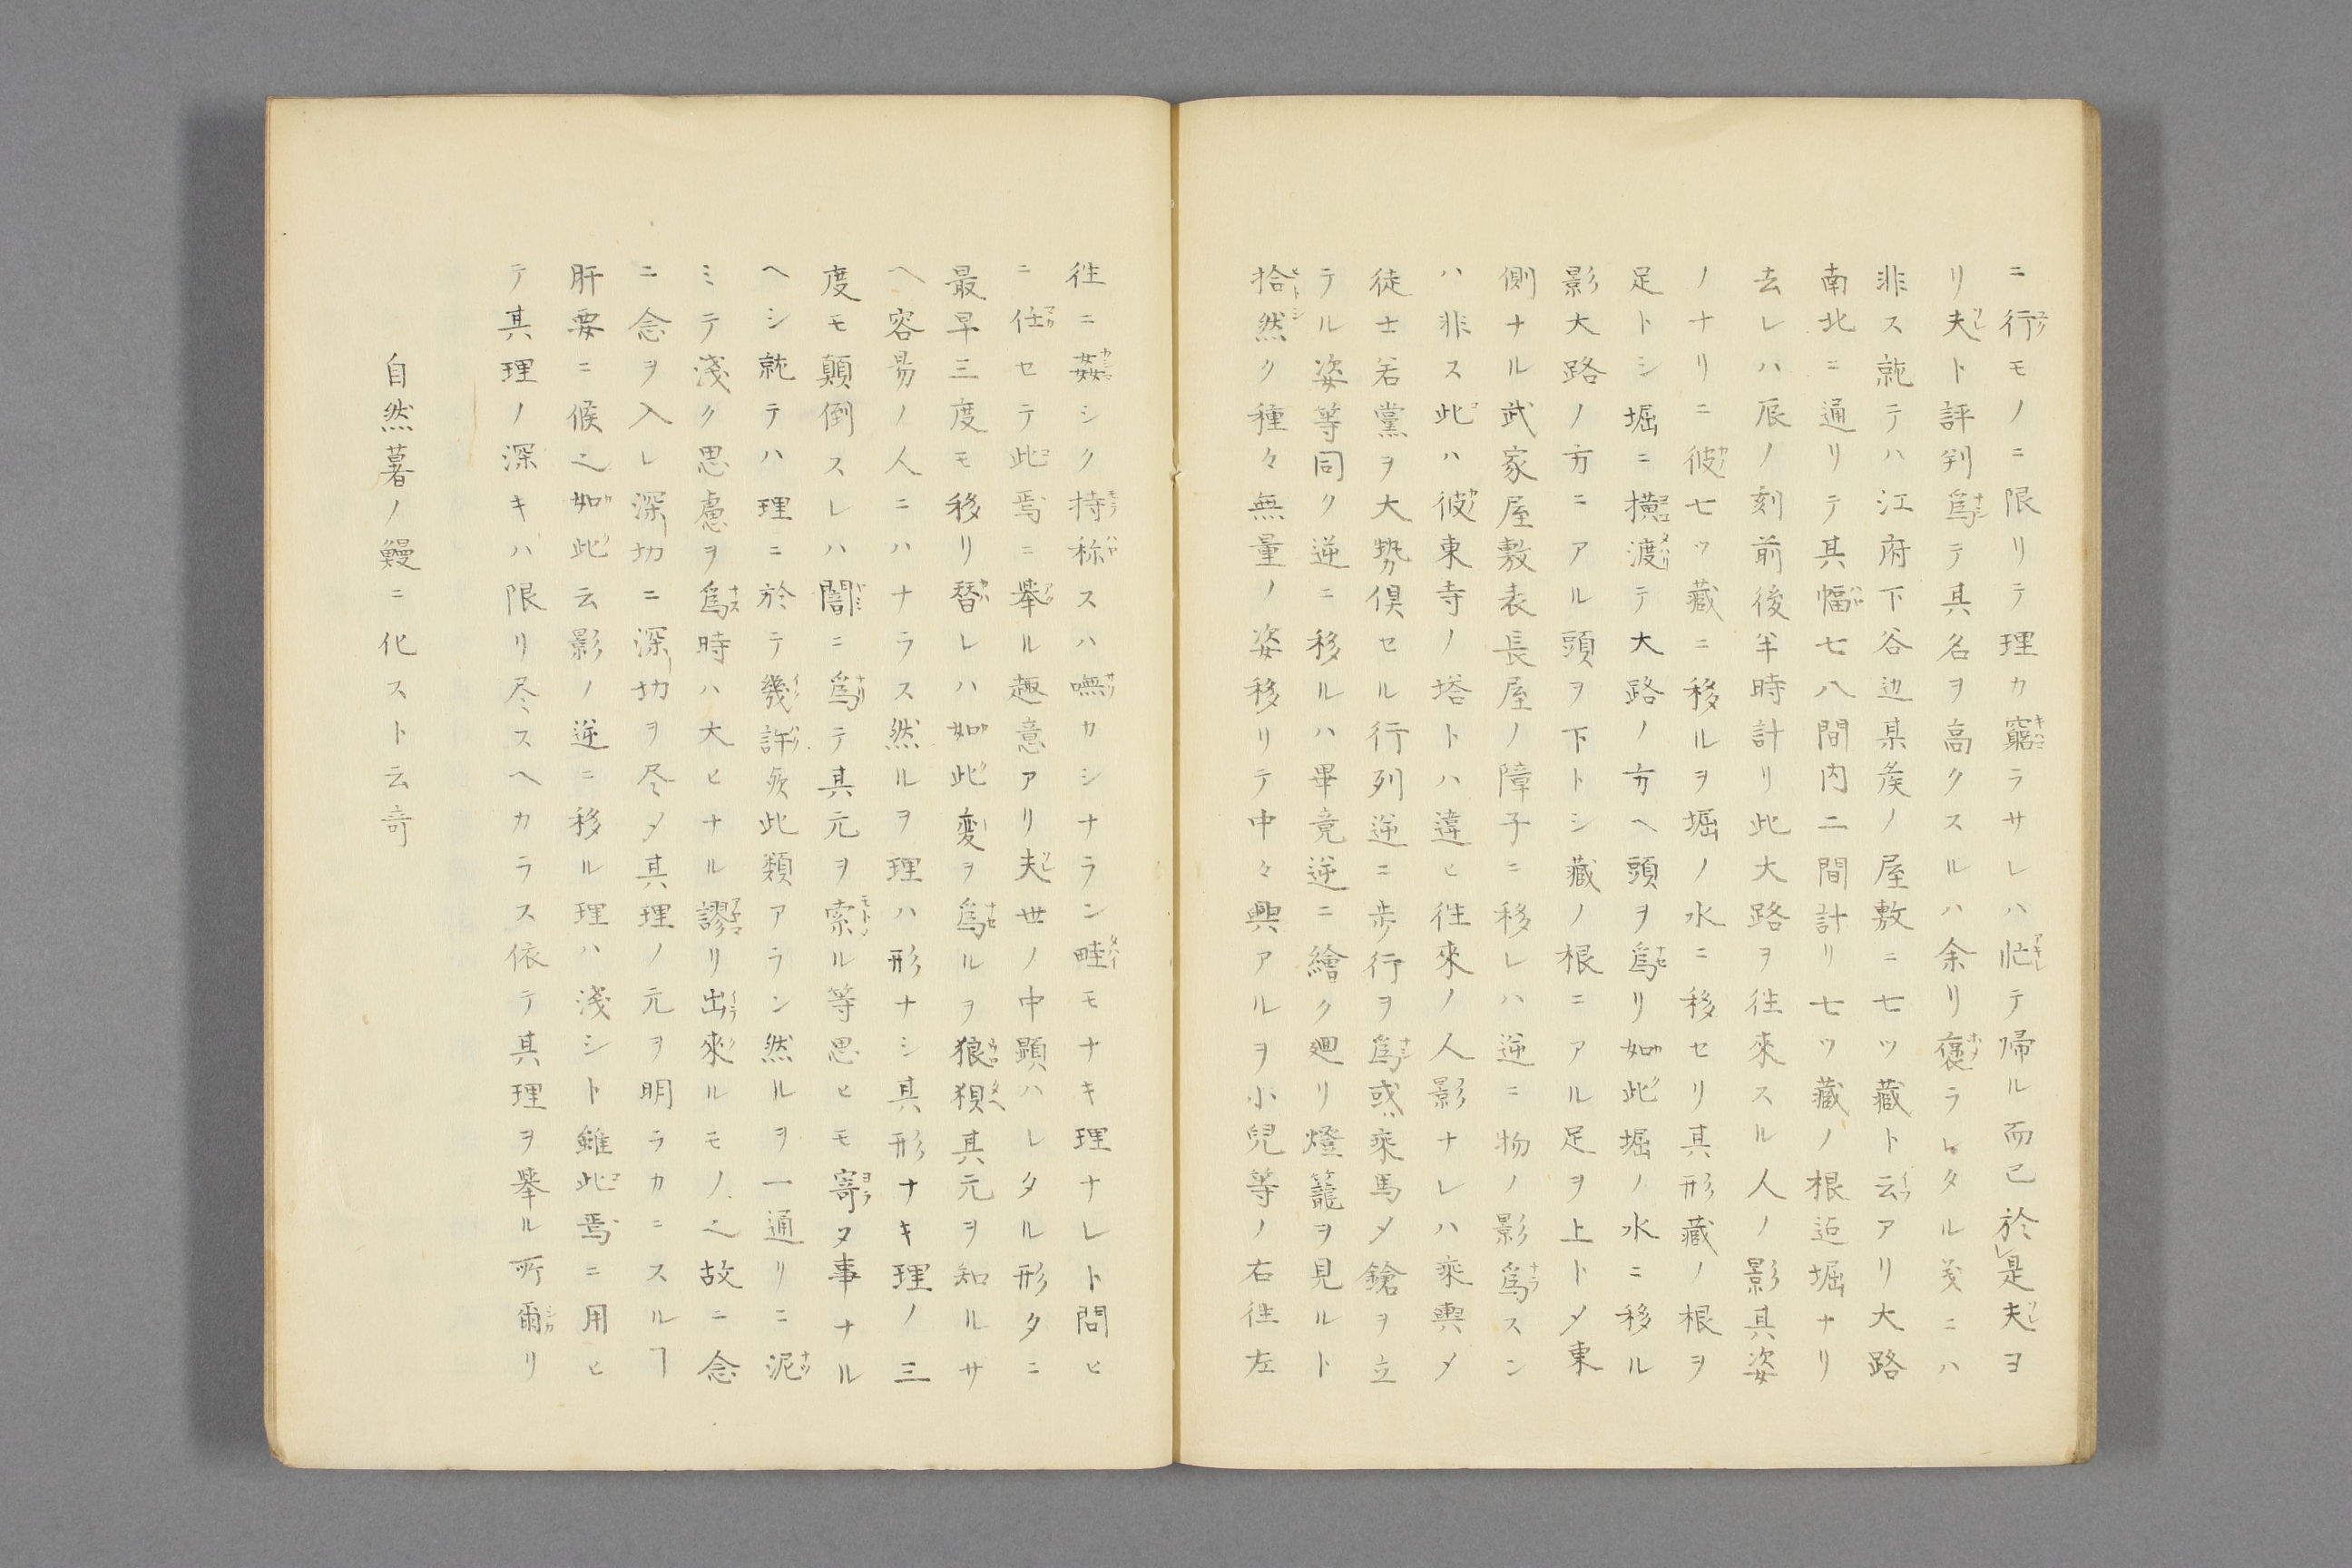 ニ行モノニ限リテ理カ窮ラサレハ忙テ帰ル而已於是夫ヨ
リ夫ト評判爲テ其名ヲ高クスルハ余リ褒ラレタル㓛ニハ
非ス就テハ江府下谷辺某矦ノ屋敷ニ七ツ藏ト云アリ大路
南北ニ通リテ其幅七八間内二間計リ七ツ藏ノ根迠堀ナリ
去レハ辰ノ刻前後半時計リ此大路ヲ往來スル人ノ影其姿
ノナリニ彼七ツ藏ニ移ルヲ堀ノ水ニ移セリ其形藏ノ根ヲ
足トシ堀ニ横渡テ大路ノ方ヘ頭ヲ爲リ如此堀ノ水ニ移ル
影大路ノ方ニアル頭ヲ下トシ藏ノ根ニアル足ヲ上トメ東
側ナル武家屋敷表長屋ノ障子ニ移レハ逆ニ物ノ影爲スン
ハ非ス此ハ彼東寺ノ塔トハ違ヒ往來ノ人影ナレハ乘輿メ
徒士若黨ヲ大勢俱セル行列逆ニ歩行ヲ爲或ハ乘馬メ鎗ヲ立
テル姿等同ク逆ニ移ルハ畢竟逆ニ繪ク廻リ燈籠ヲ見ルト
拾然ク種々無量ノ姿移リテ中々興アルヲ小兒等ノ右往左
往ニ姦シク持称スハ嘸カシナラン畦モナキ理ナレト問ヒ
ニ任セテ此焉ニ舉ル趣意アリ夫世ノ中顕ハレタル形タニ
最早三度モ移リ替レハ如此変ヲ爲ルヲ狼狽其元ヲ知ルサ
ヘ容昜ノ人ニハナラス然ルヲ理ハ形ナシ其形ナキ理ノ三
度モ顛倒スレハ闇ニ爲テ其元ヲ索ル等思ヒモ寄ヌ事ナル
ヘシ就テハ理ニ於テ幾許矦此類アラン然ルヲ一通リニ泥
ミテ淺ク思慮ヲ爲時ハ大ヒナル謬リ出來ルモノ之故ニ念
ニ念ヲ入レ深切ニ深切ヲ尽メ其理ノ元ヲ明ラカニスルヿ
肝要ニ候之如此云影ノ逆ニ移ル理ハ淺シト雖此焉ニ用ヒ
テ其理ノ深キハ限リ尽スヘカラス依テ其理ヲ舉ル所爾リ
自然薯ノ鰻ニ化スト云奇